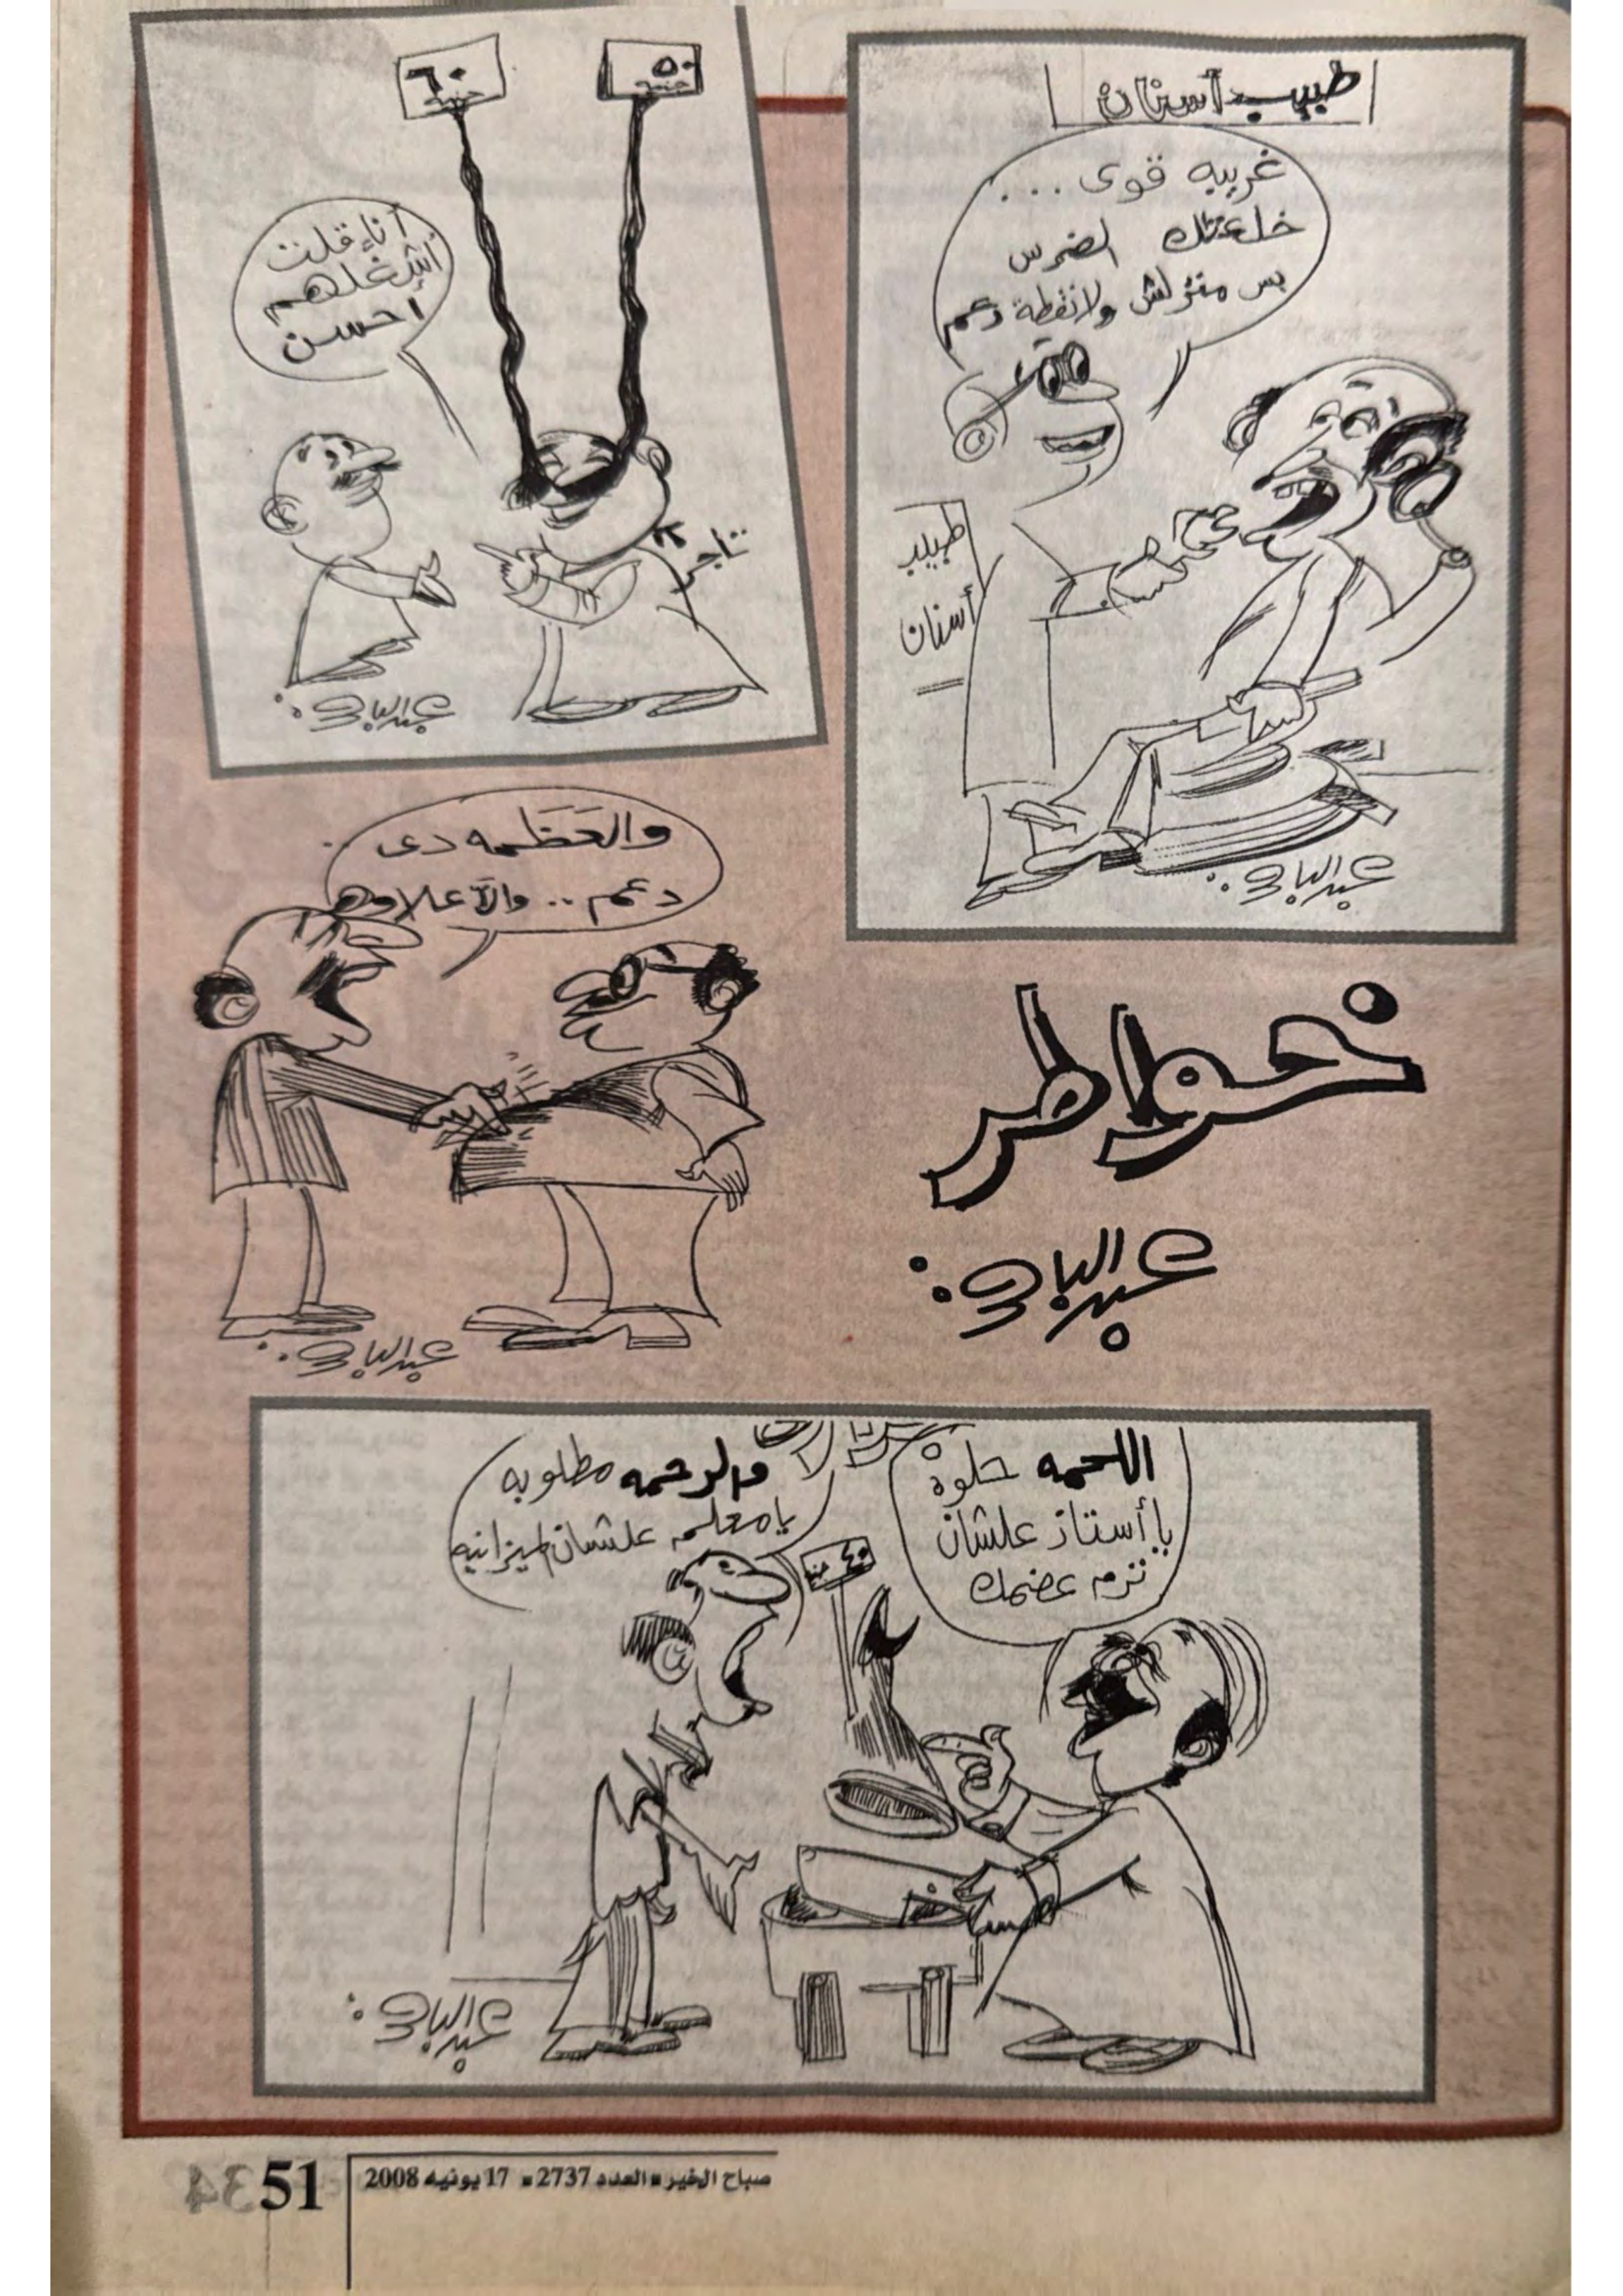 طبيب أسنان
غريبه قوى ...
خلعتلك الضرس
بس منزلش ولا نقطة دعم
طبيب
أسنان
عبد الباقى
٥٠
جنيه
٦٠
جنيه
أنا قلت
أشغلهم
احسن
تاجر
عبد الباقى
والعَظَمه دى
دعم .. والآ علاوه
عبد الباقى
خواطر
عبد الباقى
اللحمه حلوة
يا أستاذ علشان
ترم عضمك
والرحمه مطلوبه
يا معلم علشان الميزانيه
٤٠ جنيه
عبد الباقى
51
صباح الخير العدد 2737 17 يونيه 2008